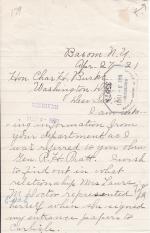 Basom N.Y.
Apr. 27-21
Hon Chas H. Burke
Washington D.C.
Dear Sir
I am
ing information from
your department as I
was referred to you thru
Gen. R. H. Pratt. I wish
to find out in what
relationship Mrs Laura
M. Doctor represented
herself when she signed
my entrance papers to
Carlisle.